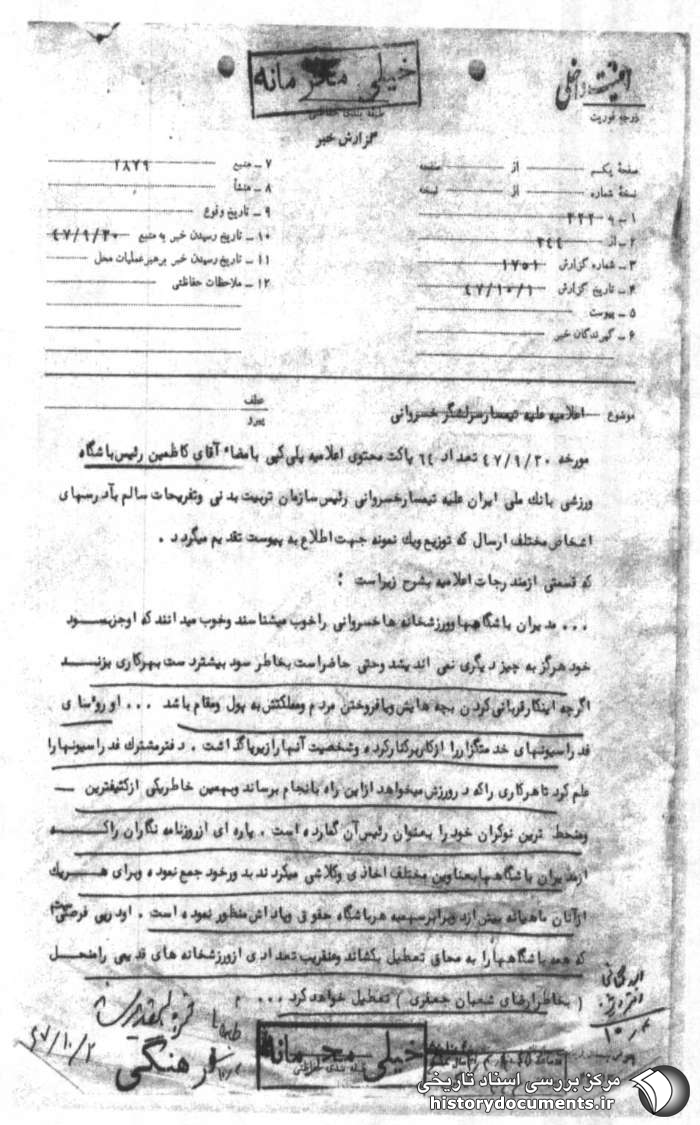 خیلی محرمانه
طبقه بندی حفاظتی
درجه فوریت
گزارش خبر
صفحهٔ یکم از صفحه
نسخهٔ شماره از نسخه
۱ ـ به ۳۲۲
۲ ـ از ۲۴۴
۳ ـ شماره گزارش ۱۷۵۱
۴ ـ تاریخ گزارش ۴۷/۱۰/۱
۵ ـ پیوست
۶ ـ گیرندگان خبر
۷ ـ منبع ۲۸۷۹
۸ ـ منشأ
۹ ـ تاریخ وقوع
۱۰ ـ تاریخ رسیدن خبر به منبع ۴۷/۹/۳۰
۱۱ ـ تاریخ رسیدن خبر برهبر عملیات محل
۱۲ ـ ملاحظات حفاظتی
موضوع اعلامیه علیه تیمسار سرلشگر خسروانی
عطف
پیرو
مورخه ۴۷/۹/۳۰ تعداد ۶۴ پاکت محتوی اعلامیه پلی کپی بامضاء آقای کاظمین رئیس باشگاه
ورزشی بانک ملی ایران علیه تیمسارخسروانی رئیس سازمان تربیت بدنی وتفریحات سالم بآدرسهای
اشخاص مختلف ارسال که توزیع ویک نمونه جهت اطلاع به پیوست تقدیم میگردد .
که قسمتی ازمندرجات اعلامیه بشرح زیراست :
... مدیران باشگاهها وورزشخانه ها خسروانی راخوب میشناسند وخوب میدانند که اوجزبسود
خود هرگز به چیز دیگری نمی اندیشد وحتی حاضراست بخاطر سود بیشتردست بهرکاری بزنـد
اگرچه اینکارقربانی کردن بچه هایش ویافروختن مردم ومملکتش به پول ومقام باشد ... او روسای
فدراسیونهای خدمتگزاررا ازکاربرکنارکرده وشخصیت آنها رازیرپاگذاشت . دفترمشترک فدراسیونها را
علم کرد تاهرکاری راکه درورزش میخواهد ازاین راه بانجام برساند وبهمین خاطریکی ازکثیفترین
ومنحط ترین نوکران خود را بعنوان رئیس آن گمارده است . پاره ای ازروزنامه نگاران راکه
ازمدیران باشگاهها بعناوین مختلف اخاذی وکلاشی میکردند بدورخود جمع نموده وبرای هریک
ازآنان ماهیانه بیش ازدوبرابرسهمیه هرباشگاه حقوق وپاداش منظور نموده است . اودرپی فرصتی است
که همه باشگاهها را به محاق تعطیل بکشاند وعنقریب تعدادی ازورزشخانه های قدیمی رامنحل
( بخاطرارضای شعبان جعفری ) تعطیل خواهد کرد ...
فرهنگی
۴۷/۱۰/۲
خیلی محرمانه
طبقه بندی حفاظتی
مرکز بررسی اسناد تاریخی
historydocuments.ir